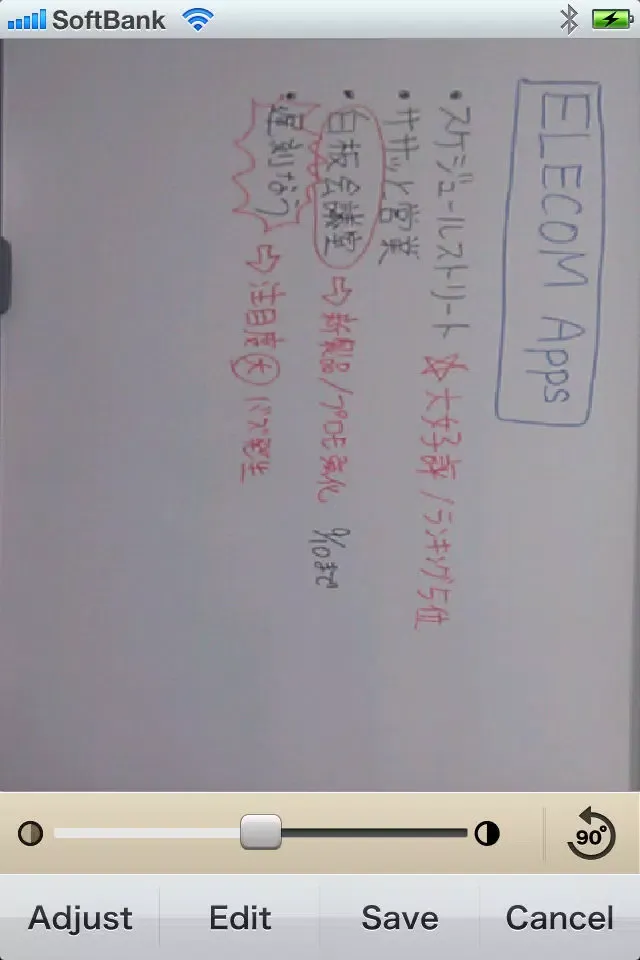 SoftBank
ELECOM Apps
・スケジュールストリート ☆大好評/ランキング5位
・ササッと営業
・白板会議室 ⇨新製品/プロモ強化 9/10まで
・遅刻なう ⇨注目度大 バズ発生
90°
Adjust Edit Save Cancel